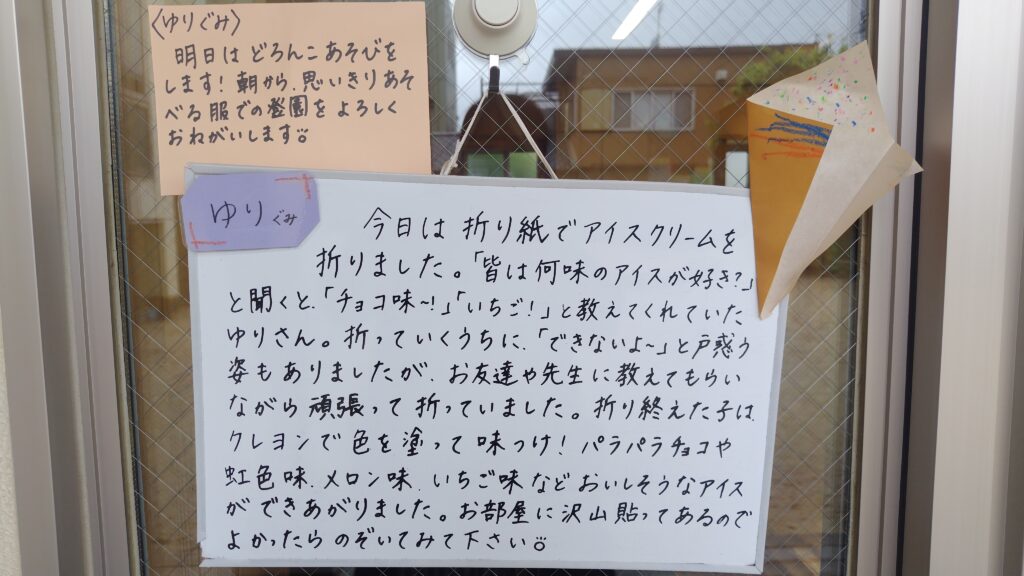 〈ゆりぐみ〉
明日は どろんこあそびを
します！朝から、思いきりあそ
べる服での登園をよろしく
おねがいします
ゆりぐみ
今日は 折り紙でアイスクリームを
折りました。「皆は何味のアイスが好き？」
と聞くと、「チョコ味〜！」「いちご！」と教えてくれていた
ゆりさん。折っていくうちに、「できないよ〜」と戸惑う
姿もありましたが、お友達や先生に教えてもらい
ながら 頑張って 折っていました。折り終えた子は、
クレヨンで 色を塗って 味つけ！ パラパラチョコや
虹色味、メロン味、いちご味など おいしそうなアイス
ができあがりました。お部屋に沢山貼ってあるので
よかったら のぞいてみて下さい